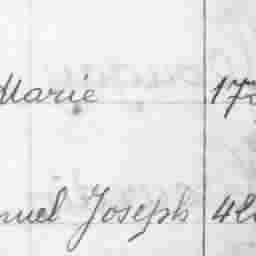 Marie 17
nuel Joseph 4